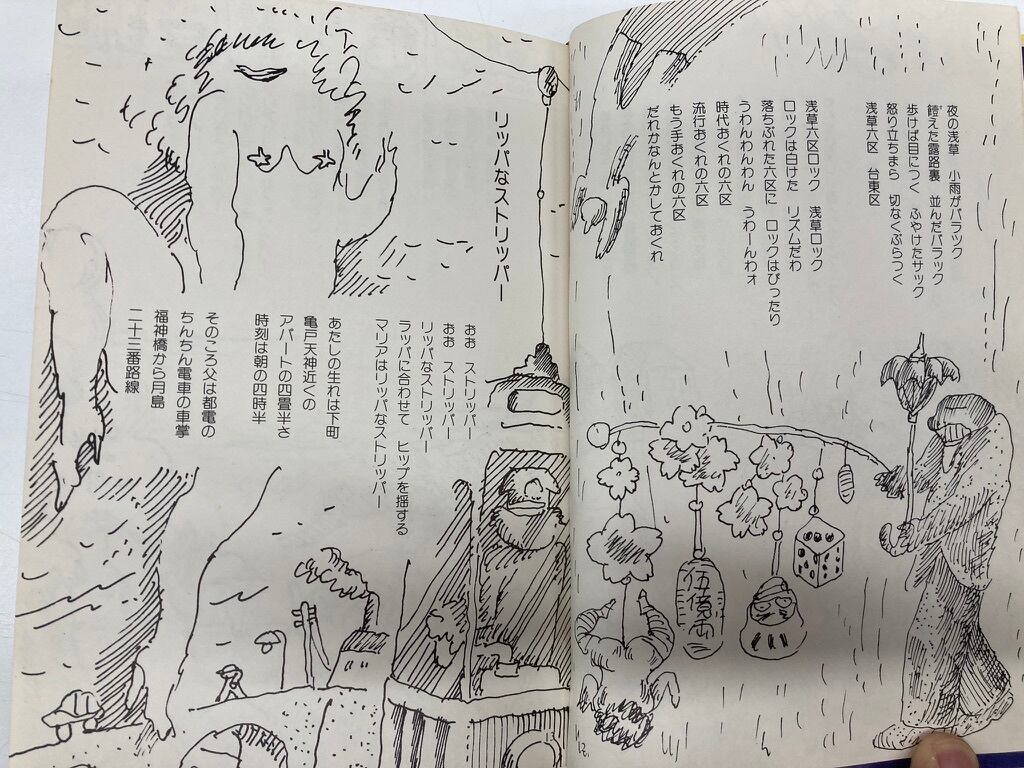 夜の浅草　小雨がパラック
饐えた露路裏　並んだバラック
歩けば目につく　ふやけたサック
怒り立ちまら　切なくぶらつく
浅草六区　台東区
浅草六区ロック　浅草ロック
ロックは白けた　リズムだわ
落ちぶれた六区に　ロックはぴったり
うわんわんわん　うわーんわォ
時代おくれの六区
流行おくれの六区
もう手おくれの六区
だれかなんとかしておくれ
伍億両
リッパなストリッパー
おお　ストリッパー
おお　ストリッパー
リッパなストリッパー
ラッパに合わせて　ヒップを揺する
マリアはリッパなストリッパー
あたしの生れは下町
亀戸天神近くの
アパートの四畳半さ
時刻は朝の四時半
そのころ父は都電の
ちんちん電車の車掌
福神橋から月島
二十三番路線